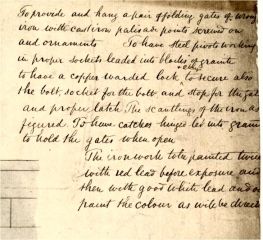 To provide and hang a pair of folding gates of wrought
iron with cast iron palisade points screwed on
and ornaments To have steel pivots working
in proper sockets leaded into blocks of granite
to have a copper warded lock to secure also
the bolt, socket for the bolt and stop for the gate
and proper latch. The scantlings of the iron as
figured. To have catches hinged let into granite
to hold the gates when open
The ironwork to be painted twice
with red lead before exposure and
then with good white lead and
paint the colour as will be directed